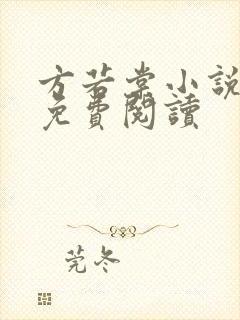 方若棠小說
免費閱讀
莞冬